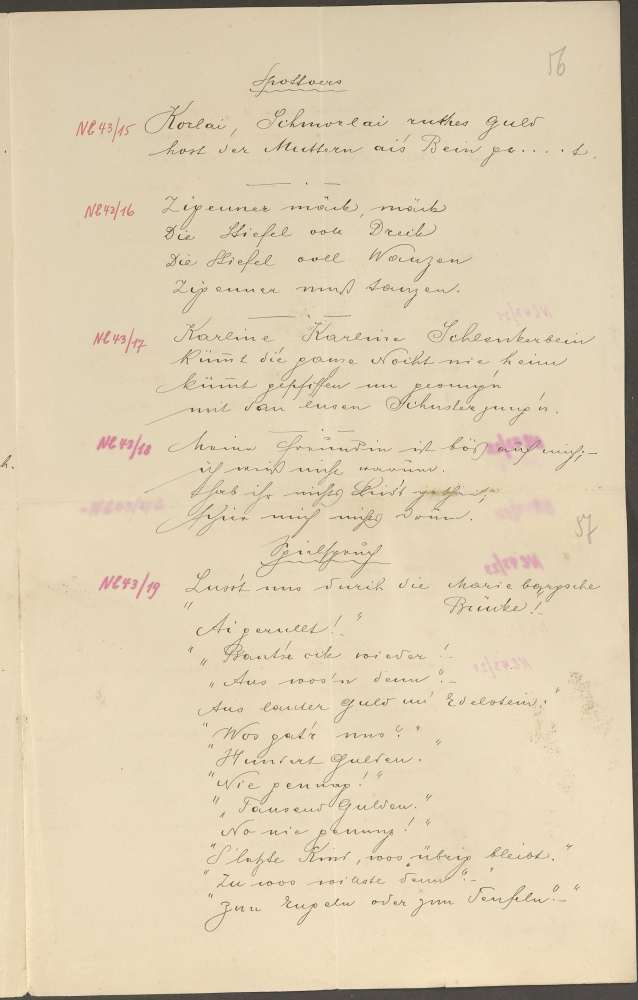 56
Spottvers
NL 43/15 Korlai, Schmorlai ruthes Guld
host der Muttern ais Bein ge....t.
NL 43/16 Zigeuner mäck, mäck
Die Stiefel voll Dreck
Die Stiefel voll Wanzen
Zigeuner muß tanzen.
NL 43/17 Karline Karline Schlenkerbein
kümmt die ganze Nocht nie heim
kümmt gepfiffen un gesung'n
mit dan lusen Schusterjung'n.
NL 43/18 Meine Freundin ist bös auf mich,-
ich weiß nicht warum.
s'hab ihr nichts
mich nichts drum.
57
Spielspruch
NL 43/19 Lusst uns durch die Mariebargsche
Brücke!
" Ai gerullt!"
" Bautse ock wieder!
" Aus wos'n denn"?-
Aus lauter Guld un' Edelstein."
"Wos gat'r uns?"
"Hundert Gulden."
"Nie gennug!"
"Tausend Gulden."
"No nie genung!"
"S'letzte Kind, wos übrig bleibt."
"Zu wos willste denn"?-"
"Zun Engeln oder zun Teufeln"-"